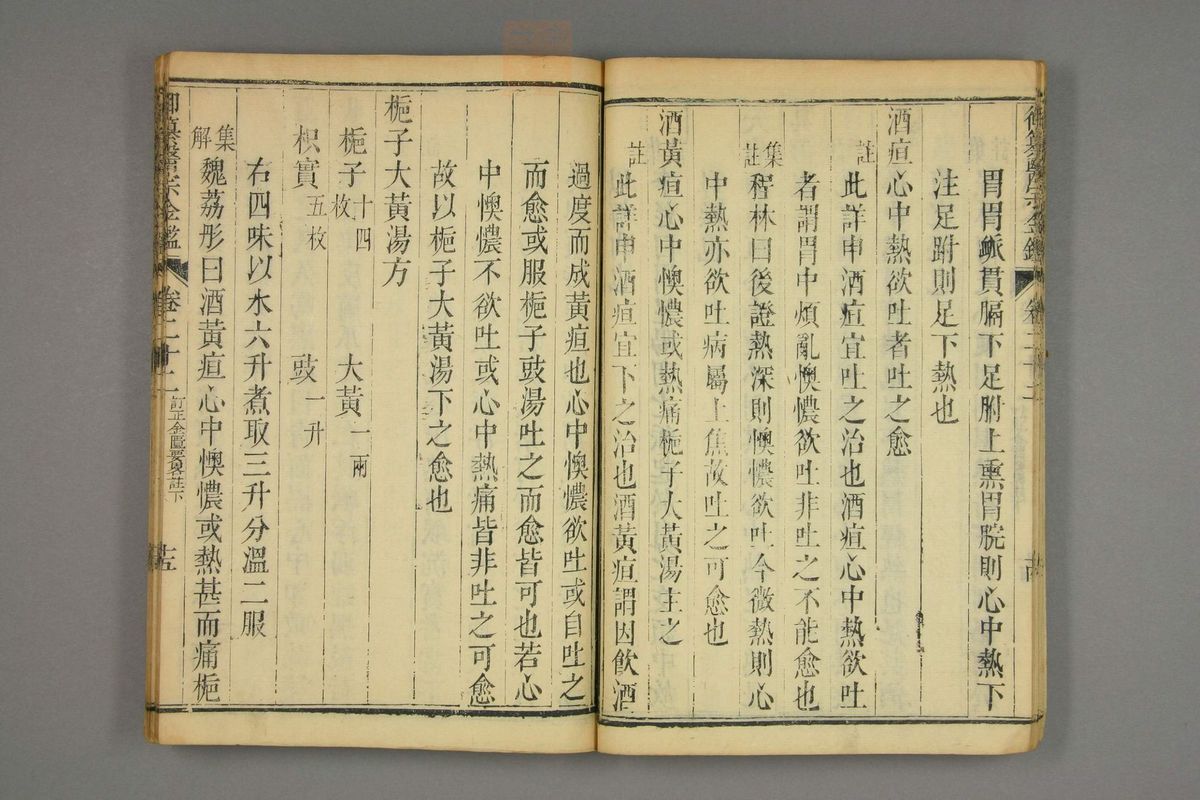 胃胃䘑貫膈下足胕上熏胃脘則心中熱下
注足跗則足下熱也
酒疸心中熱欲吐者吐之愈
註此詳申酒疸宜吐之治也酒疸心中熱欲吐
者謂胃中煩亂懊憹欲吐非吐之不能愈也
集註程林曰後證熱深則懊憹欲吐今微熱則心
中熱亦欲吐病屬上焦故吐之可愈也
酒黃疸心中懊憹或熱痛梔子大黃湯主之
註此詳申酒疸宜下之治也酒黃疸謂因飲酒
過度而成黃疸也心中懊憹欲吐或自吐之
而愈或服梔子豉湯吐之而愈皆可也若心
中懊憹不欲吐或心中熱痛皆非吐之可愈
故以梔子大黃湯下之愈也
梔子大黃湯方
梔子十四枚 大黃一兩
枳實五枚 豉一升
右四味以水六升煮取三升分溫二服
集解魏荔彤曰酒黃疸心中懊憹或熱甚而痛梔
御纂醫宗金鑑 卷二十二 訂正金匱要畧註下 十五